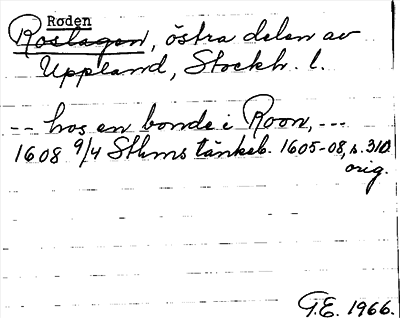 Roden
Roslagen, östra delen av
Uppland, Stockh. l.
-- hos en bonde i Roon, ---
1608 9/4 Sthms tänkeb. 1605-08, s. 310.
orig.
G.E. 1966.